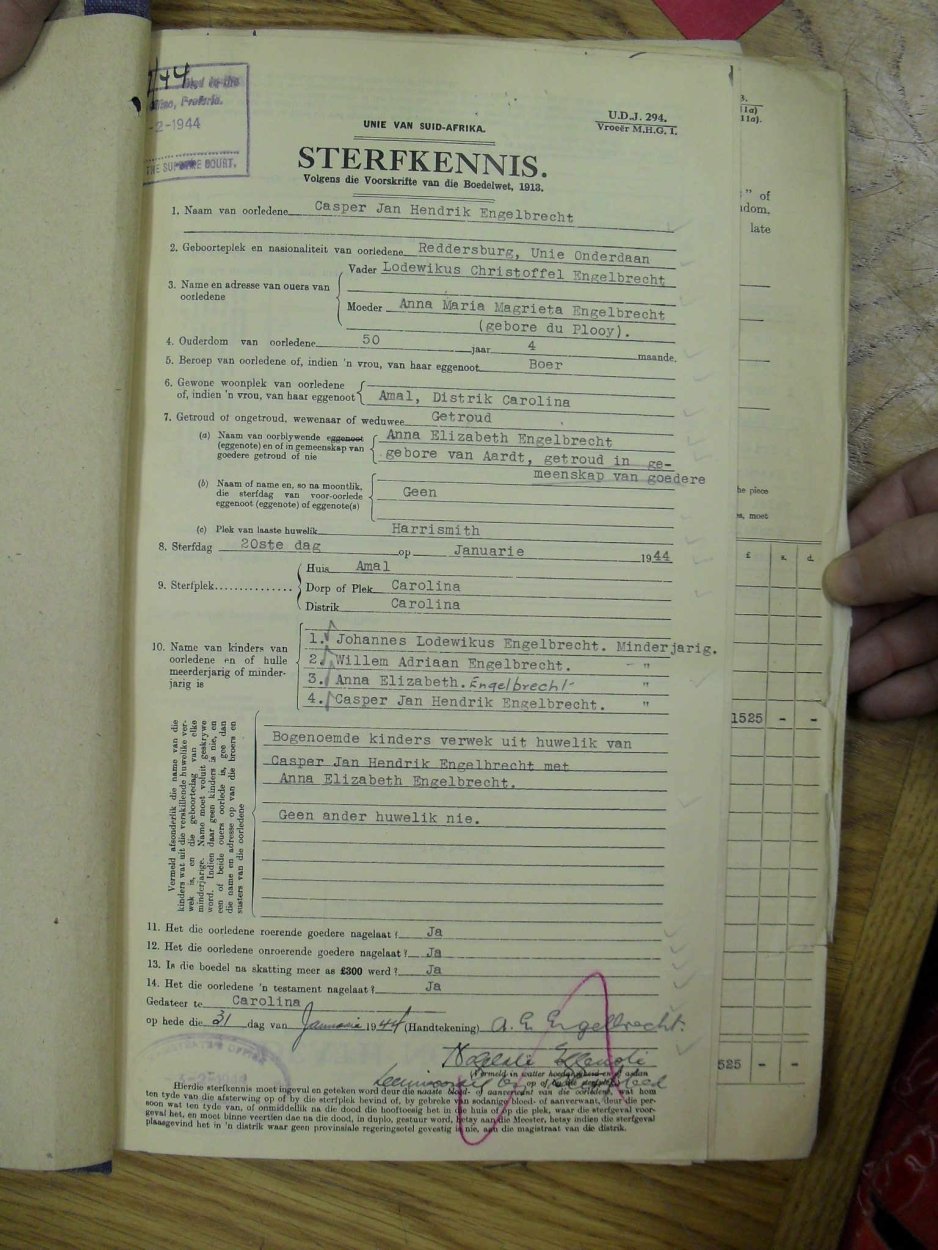 /44
Office, Pretoria.
-2-1944
THE SUPREME COURT.
U.D.J. 294.
Vroeër M.H.G. I.
UNIE VAN SUID-AFRIKA.
STERFKENNIS.
Volgens die Voorskrifte van die Boedelwet, 1913.
1. Naam van oorledene Casper Jan Hendrik Engelbrecht
2. Geboorteplek en nasionaliteit van oorledene Reddersburg, Unie Onderdaan
3. Name en adresse van ouers van oorledene
Vader Lodewikus Christoffel Engelbrecht
Moeder Anna Maria Magrieta Engelbrecht
(gebore du Plooy).
4. Ouderdom van oorledene 50 jaar 4 maande.
5. Beroep van oorledene of, indien 'n vrou, van haar eggenoot Boer
6. Gewone woonplek van oorledene
of, indien 'n vrou, van haar eggenoot Amal, Distrik Carolina
7. Getroud of ongetroud, wewenaar of weduwee Getroud
(a) Naam van oorblywende eggenoot Anna Elizabeth Engelbrecht
(eggenote) en of in gemeenskap van
goedere getroud of nie gebore van Aardt, getroud in ge-
meenskap van goedere
(b) Naam of name en, so na moontlik,
die sterfdag van voor-oorlede Geen
eggenoot (eggenote) of eggenote(s)
(c) Plek van laaste huwelik Harrismith
8. Sterfdag 20ste dag op Januarie 1944
9. Sterfplek
Huis Amal
Dorp of Plek Carolina
Distrik Carolina
10. Name van kinders van
oorledene en of hulle
meerderjarig of minder-
jarig is
1. Johannes Lodewikus Engelbrecht. Minderjarig.
2. Willem Adriaan Engelbrecht. "
3. Anna Elizabeth. Engelbrecht "
4. Casper Jan Hendrik Engelbrecht. "
Vermeld afsonderlik die name van die
kinders wat uit die verskillende huwelike ver-
wek is, en die geboortedag van elke
minderjarige. Name moet voluit geskrywe
word. Indien daar geen kinders is nie, en
een of beide ouers oorlede is, gee dan
die name en adresse op van die broers en
susters van die oorledene
Bogenoemde kinders verwek uit huwelik van
Casper Jan Hendrik Engelbrecht met
Anna Elizabeth Engelbrecht.
Geen ander huwelik nie.
11. Het die oorledene roerende goedere nagelaat? Ja
12. Het die oorledene onroerende goedere nagelaat? Ja
13. Is die boedel na skatting meer as £300 werd? Ja
14. Het die oorledene 'n testament nagelaat? Ja
Gedateer te Carolina
op hede die 31 dag van Januarie 1944 (Handtekening) A. E. Engelbrecht.
Hierdie sterfkennis moet ingevul en geteken word deur die naaste bloed- of aanverwant van die oorledene, wat hom
ten tyde van die afsterwing op of by die sterfplek bevind of, by gebreke van sodanige bloed- of aanverwant, deur die per-
soon wat ten tyde van, of onmiddellik na die dood die hooftoesig het in die huis of op die plek, waar die sterfgeval voor-
geval het, en moet binne veertien dae na die dood, in duplo, gestuur word, hetsy aan die Meester, hetsy indien die sterfgeval
plaasgevind het in 'n distrik waar geen provinsiale regeringsetel gevestig is nie, aan die magistraat van die distrik.
" of
late
he piece
moet
£ s. d.
1525 - -
525 - -